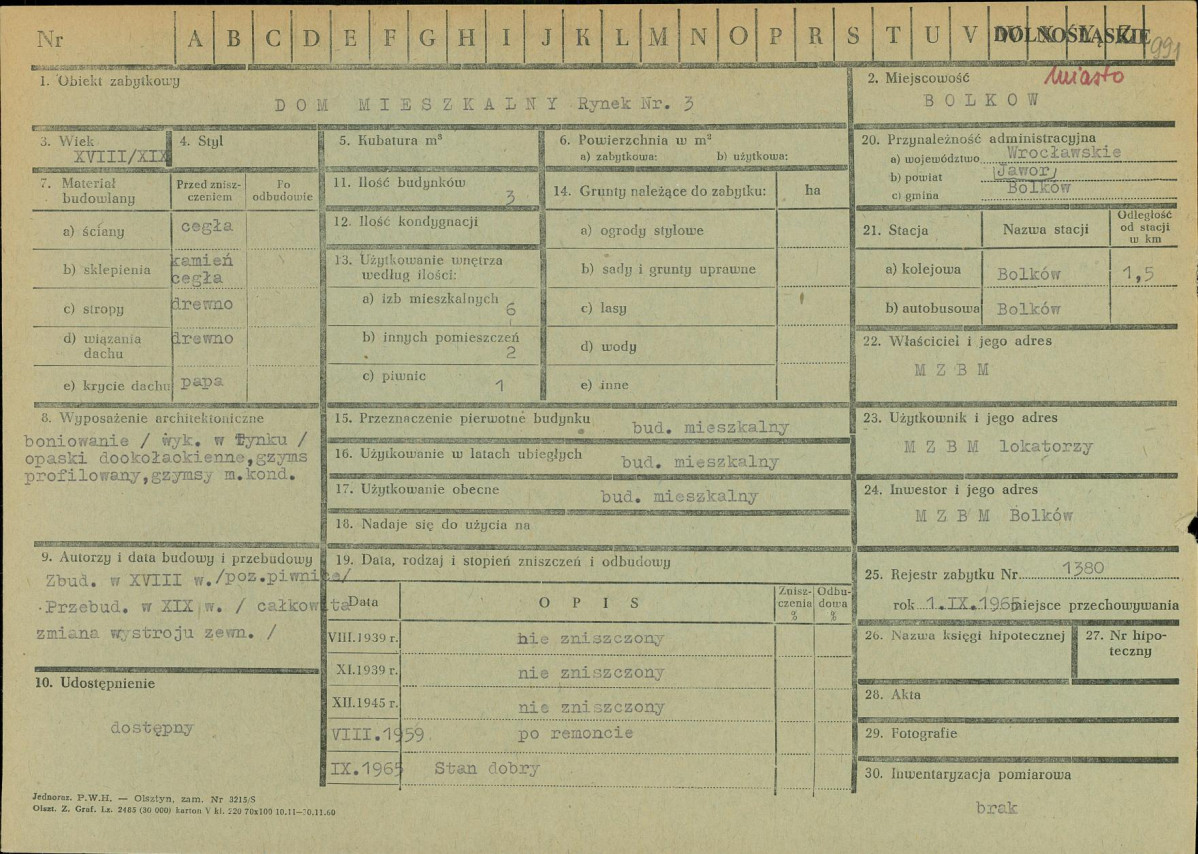 Nr A B C D E F G H I J K L M N O P R S T U V W X Y Z DOLNOŚLĄSKIE 991
1. Obiekt zabytkowy
DOM MIESZKALNY Rynek Nr. 3
2. Miejscowość miasto
BOLKOW
3. Wiek
XVIII/XIX
4. Styl
5. Kubatura m³
6. Powierzchnia w m²
a) zabytkowa: b) użytkowa:
20. Przynależność administracyjna
a) województwo Wrocławskie
b) powiat Jawor
c) gmina Bolków
7. Materiał budowlany
Przed zniszczeniem
Po odbudowie
a) ściany cegła
b) sklepienia kamień cegła
c) stropy drewno
d) wiązania dachu drewno
e) krycie dachu papa
11. Ilość budynków 3
12. Ilość kondygnacji
13. Użytkowanie wnętrza
według ilości:
a) izb mieszkalnych 6
b) innych pomieszczeń 2
c) piwnic 1
14. Grunty należące do zabytku: ha
a) ogrody stylowe
b) sady i grunty uprawne
c) lasy
d) wody
e) inne
21. Stacja Nazwa stacji Odległość od stacji w km
a) kolejowa Bolków 1,5
b) autobusowa Bolków
22. Właściciel i jego adres
M Z B M
8. Wyposażenie architektoniczne
boniowanie / wyk. w tynku /
opaski dookołaokienne,gzyms
profilowany,gzymsy m.kond.
15. Przeznaczenie pierwotne budynku bud. mieszkalny
16. Użytkowanie w latach ubiegłych bud. mieszkalny
17. Użytkowanie obecne bud. mieszkalny
18. Nadaje się do użycia na
23. Użytkownik i jego adres
M Z B M lokatorzy
24. Inwestor i jego adres
M Z B M Bolków
9. Autorzy i data budowy i przebudowy
Zbud. w XVIII w./poz.piwnice/
Przebud. w XIX w. / całkowita
zmiana wystroju zewn. /
19. Data, rodzaj i stopień zniszczeń i odbudowy
Data OPIS Zniszczenia % Odbudowa %
VIII.1939 r. nie zniszczony
XI.1939 r. nie zniszczony
XII.1945 r. nie zniszczony
VIII.1959 po remoncie
IX.1965 Stan dobry
25. Rejestr zabytku Nr 1380
rok 1.IX.1965 miejsce przechowywania
26. Nazwa księgi hipotecznej
27. Nr hipoteczny
10. Udostępnienie
dostępny
28. Akta
29. Fotografie
30. Inwentaryzacja pomiarowa
brak
Jednoraz. P.W.H. — Olsztyn, zam. Nr 3215/S
Olszt. Z. Graf. Lz. 2485 (30 000) karton V kl. 220 70x100 10.11—30.11.60